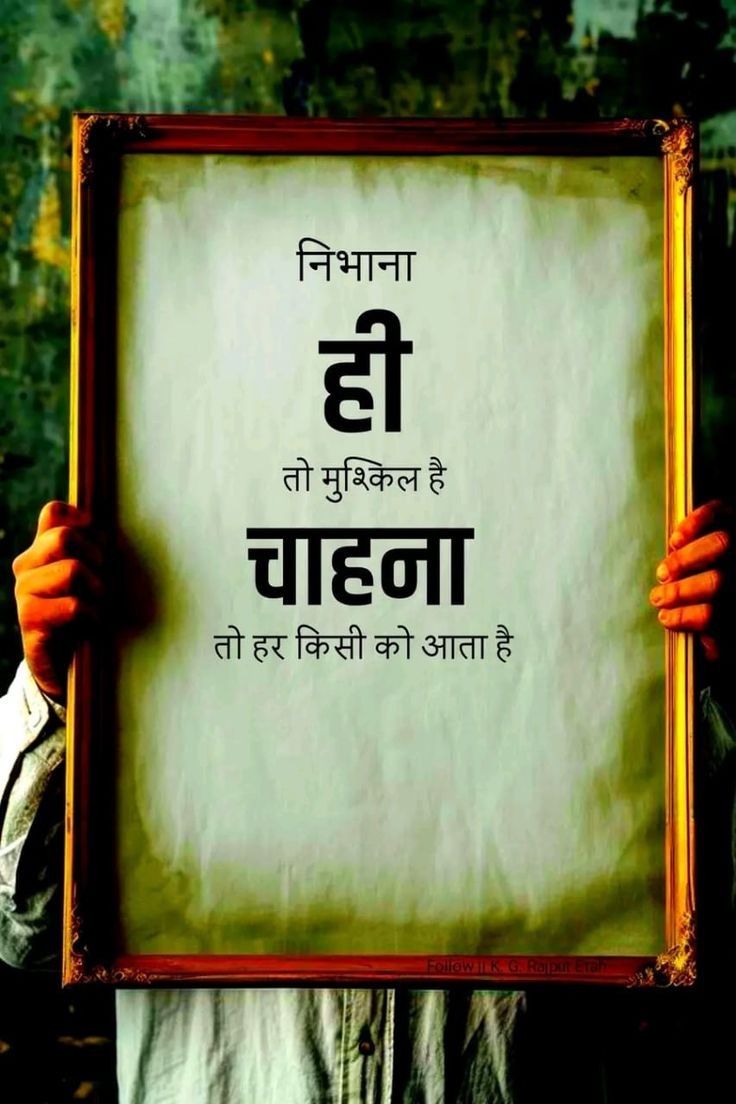 निभाना
ही
तो मुश्किल है
चाहना
तो हर किसी को आता है
Follow || K. G. Rajput Etah